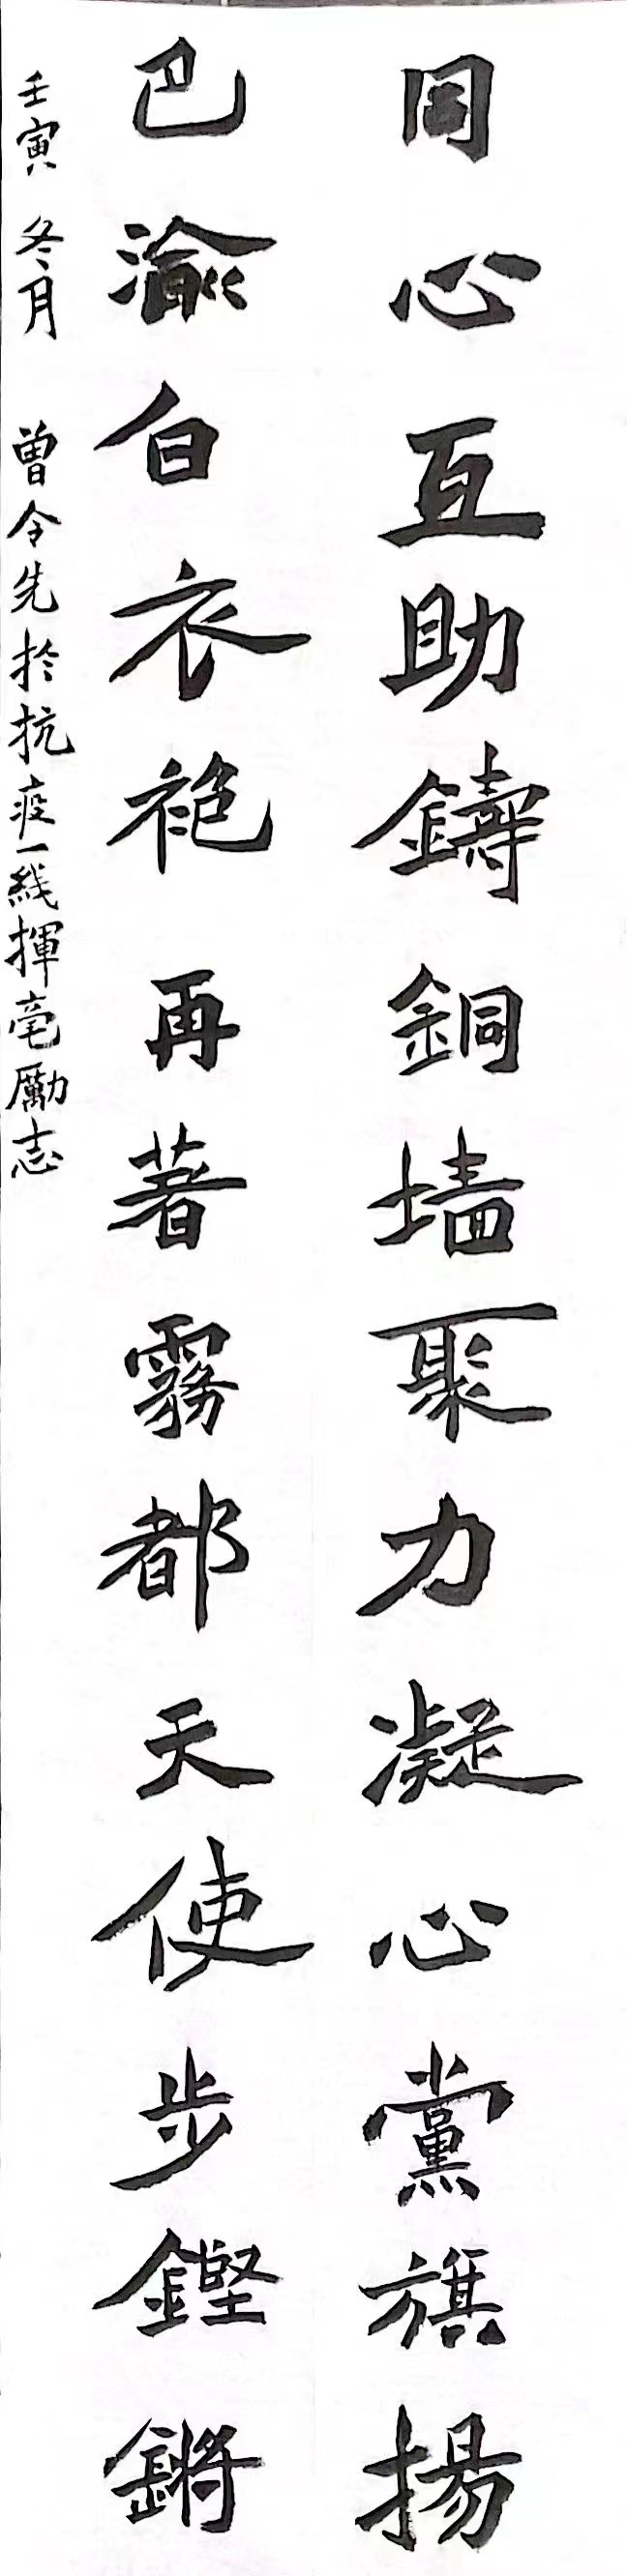 同心互助鑄銅墙聚力凝心黨旗揚
巴渝白衣袍再著霧都天使步鏗鏘
壬寅 冬月 曾令先於抗疫一綫揮毫勵志